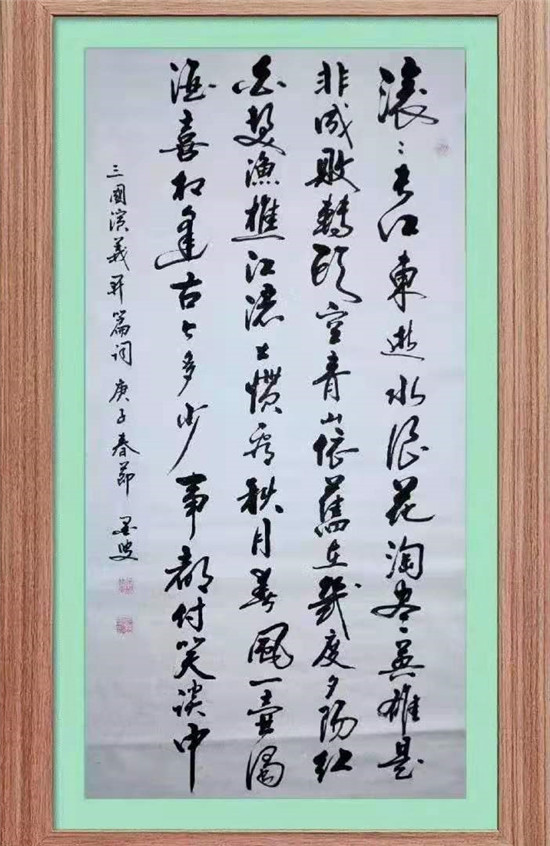 滚〻长江東逝水浪花淘尽英雄是
非成败轉頭空青山依舊在幾度夕陽红
白髮漁樵江渚上惯看秋月春風一壶濁
酒喜相逢古今多少事都付笑谈中
三國演義开篇词 庚子春節 墨叟